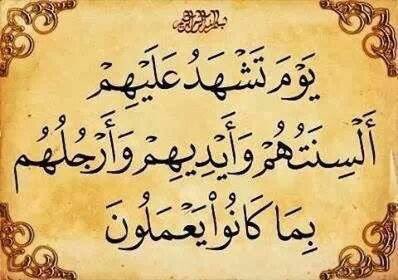 بسم الله الرحمن الرحيم
يَوْمَ تَشْهَدُ عَلَيْهِمْ
أَلْسِنَتُهُمْ وَأَيْدِيهِمْ وَأَرْجُلُهُم
بِمَا كَانُوا۟ يَعْمَلُونَ